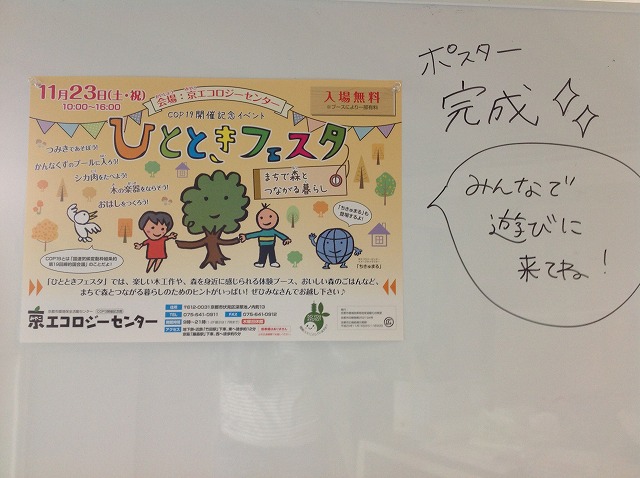 11月23日(土・祝)
10:00〜16:00
会場：京エコロジーセンター
入場無料
※ブースにより一部有料
COP19開催記念イベント
ひとときフェスタ
まちで森と
つながる暮らし
つみきであそぼう!
かんなくずのプールに入ろう!
シカ肉をたべよう!
木の楽器をならそう!
おはしをつくろう!
「ちきゅまる」も
登場するよ!
「ちきゅまる」
COP19とは「国連気候変動枠組条約
第19回締約国会議」のことだよ!
「ひとときフェスタ」では、楽しい木工作や、森を身近に感じられる体験ブース、おいしい森のごはんなど、
まちで森とつながる暮らしのためのヒントがいっぱい! ぜひみなさんでお越し下さい♪
京エコロジーセンター
みやこ
住所 〒612-0031 京都市伏見区深草池ノ内町13
TEL 075-641-0911 FAX 075-641-0912
9時〜21時
アクセス
ポスター
完成
みんなで
遊びに
来てね!